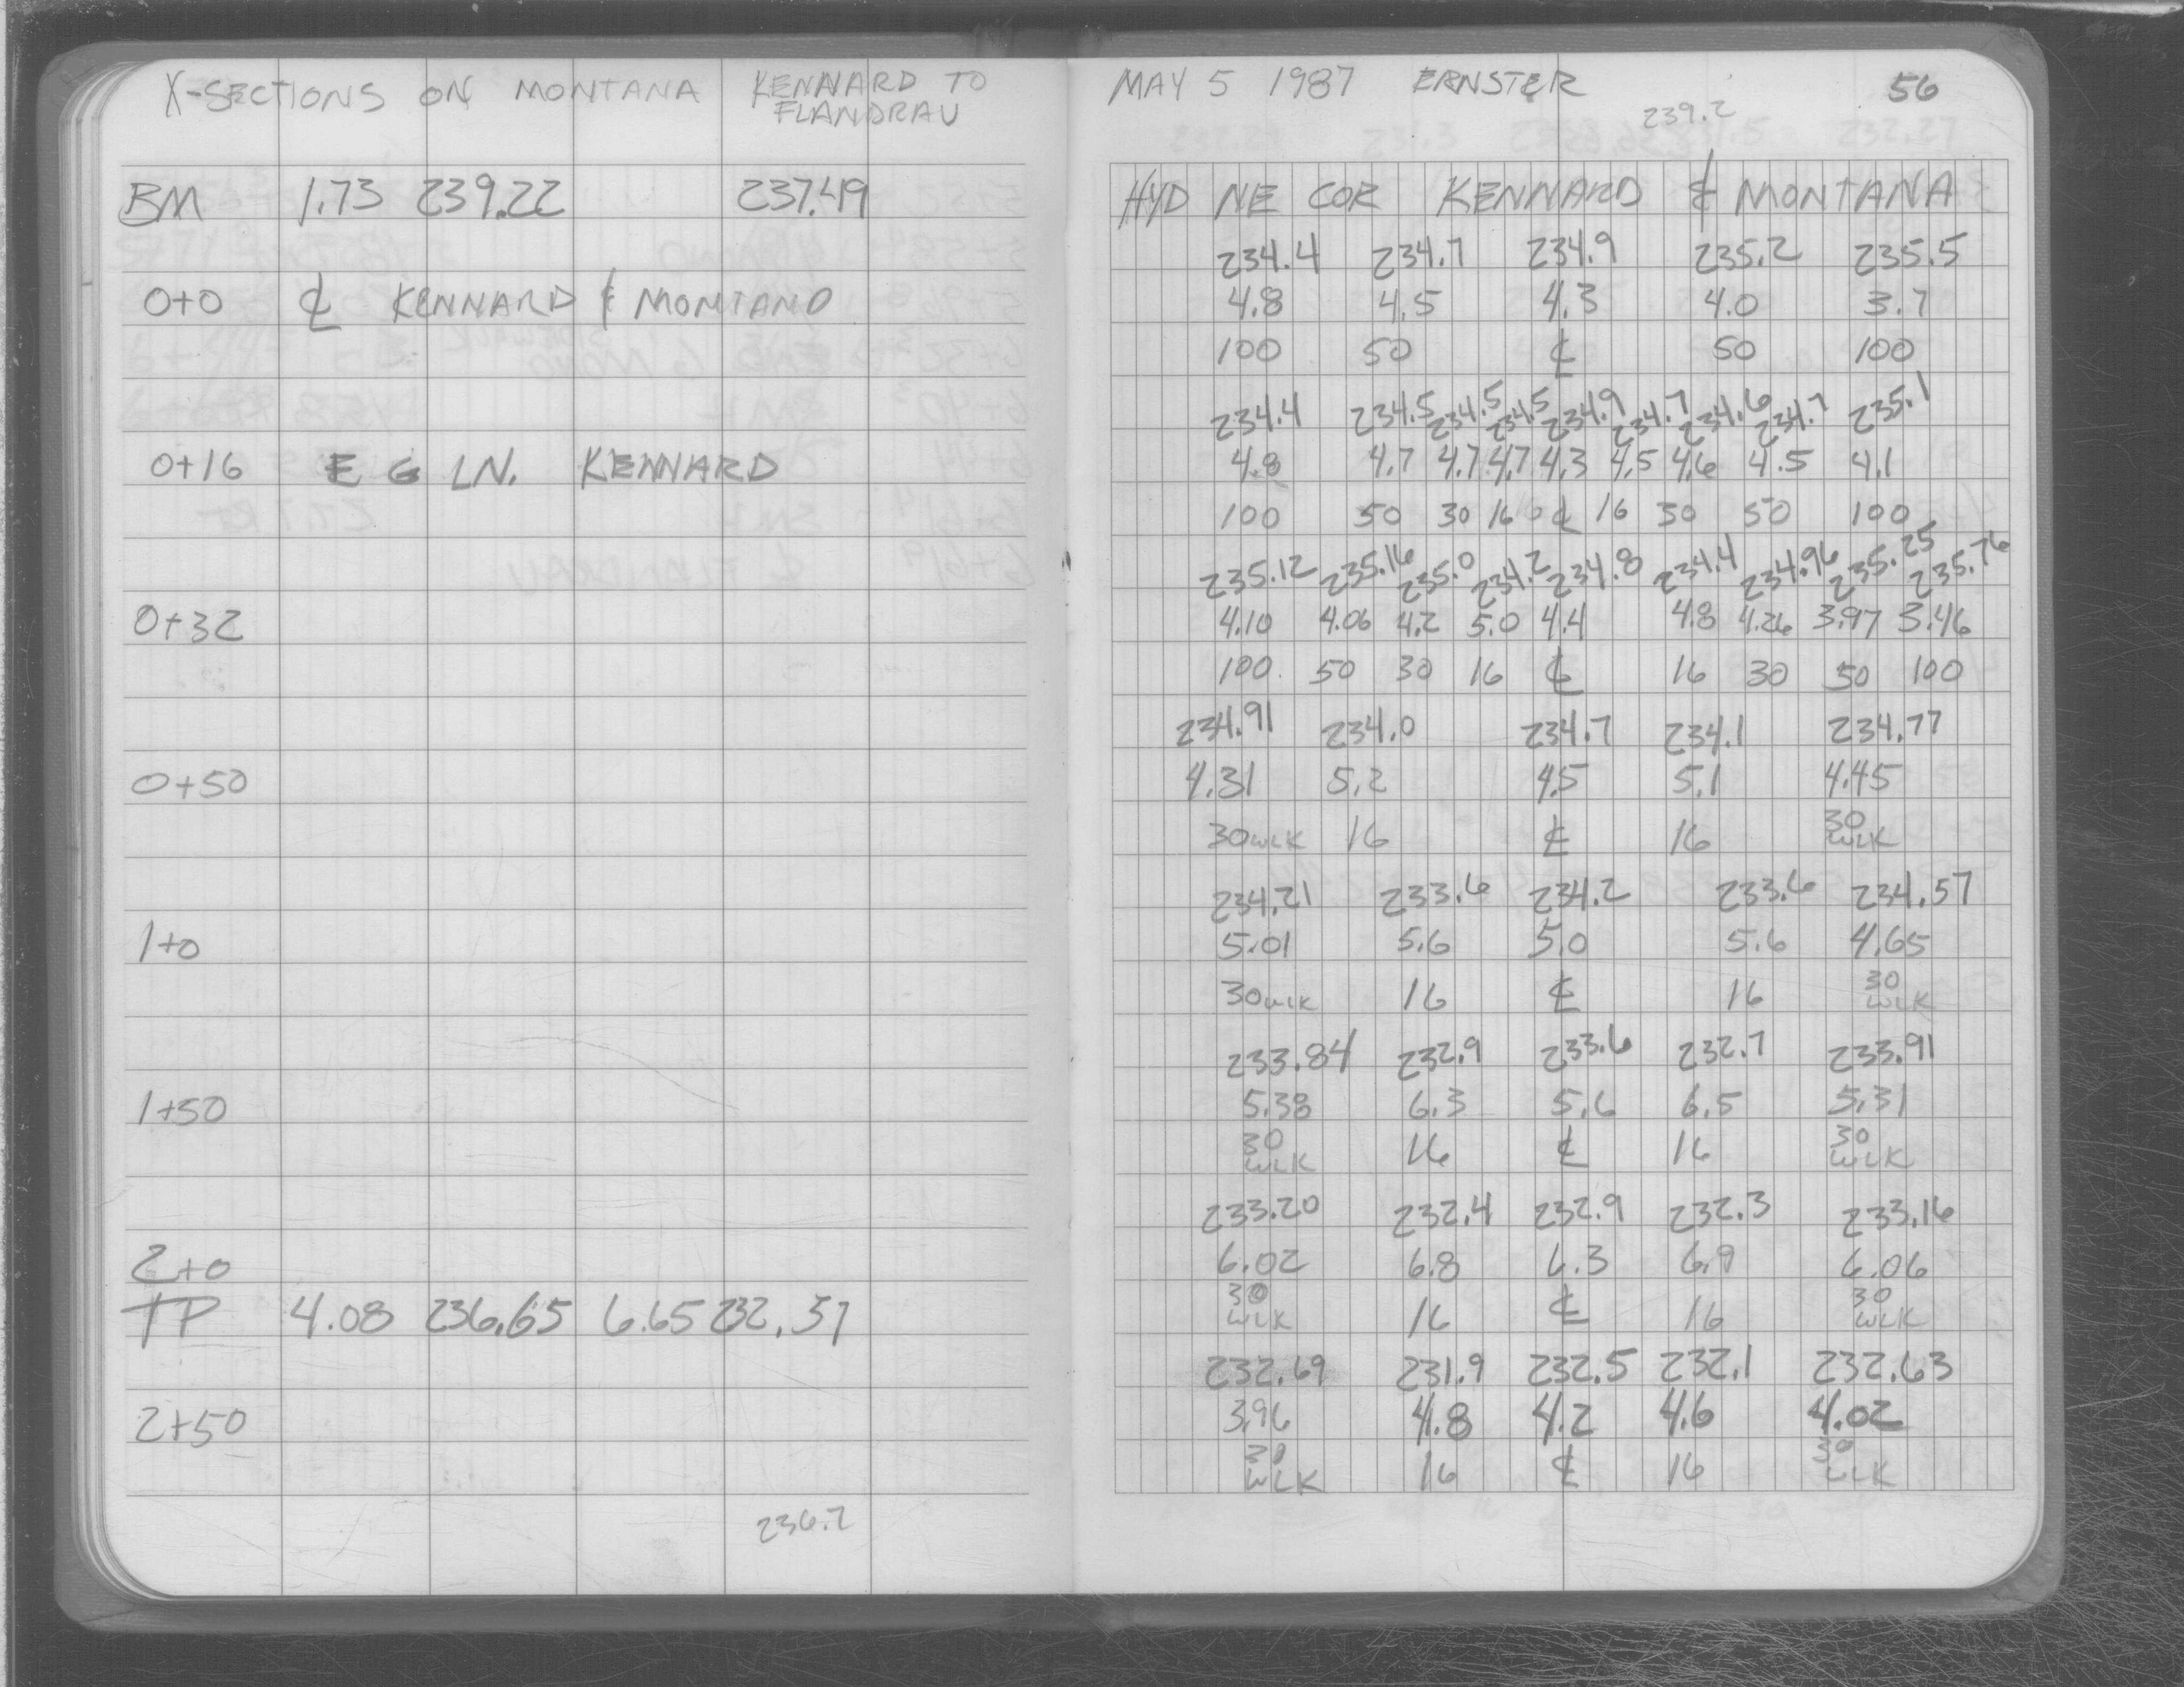 X-SECTIONS ON MONTANA KENNARD TO
FLANDRAU
BM 1.73 239.22 237.49
0+0 ℄ KENNARD & MONTANO
0+16 E G LN. KENNARD
0+32
0+50
1+0
1+50
2+0
TP 4.08 236.65 6.65 232.57
2+50
236.7
MAY 5 1987 ERNSTER 56
239.2
HYD NE COR KENNARD & MONTANA
234.4 234.7 234.9 235.2 235.5
4.8 4.5 4.3 4.0 3.7
100 50 ℄ 50 100
234.4 234.5 234.5 234.5 234.9 234.7 234.6 234.7 235.1
4.8 4.7 4.7 4.7 4.3 4.5 4.6 4.5 4.1
100 50 30 16 ℄ 16 30 50 100
235.12 235.16 235.0 234.2 234.8 234.4 234.96 235.25 235.76
4.10 4.06 4.2 5.0 4.4 4.8 4.26 3.97 3.46
100 50 30 16 ℄ 16 30 50 100
234.91 234.0 234.7 234.1 234.77
4.31 5.2 4.5 5.1 4.45
30 WLK 16 ℄ 16 30 WLK
234.21 233.6 234.2 233.6 234.57
5.01 5.6 5.0 5.6 4.65
30 WLK 16 ℄ 16 30 WLK
233.84 232.9 233.6 232.7 233.91
5.38 6.3 5.6 6.5 5.31
30 WLK 16 ℄ 16 30 WLK
233.20 232.4 232.9 232.3 233.16
6.02 6.8 6.3 6.9 6.06
30 WLK 16 ℄ 16 30 WLK
232.69 231.9 232.5 232.1 232.63
3.96 4.8 4.2 4.6 4.02
30 WLK 16 ℄ 16 30 WLK